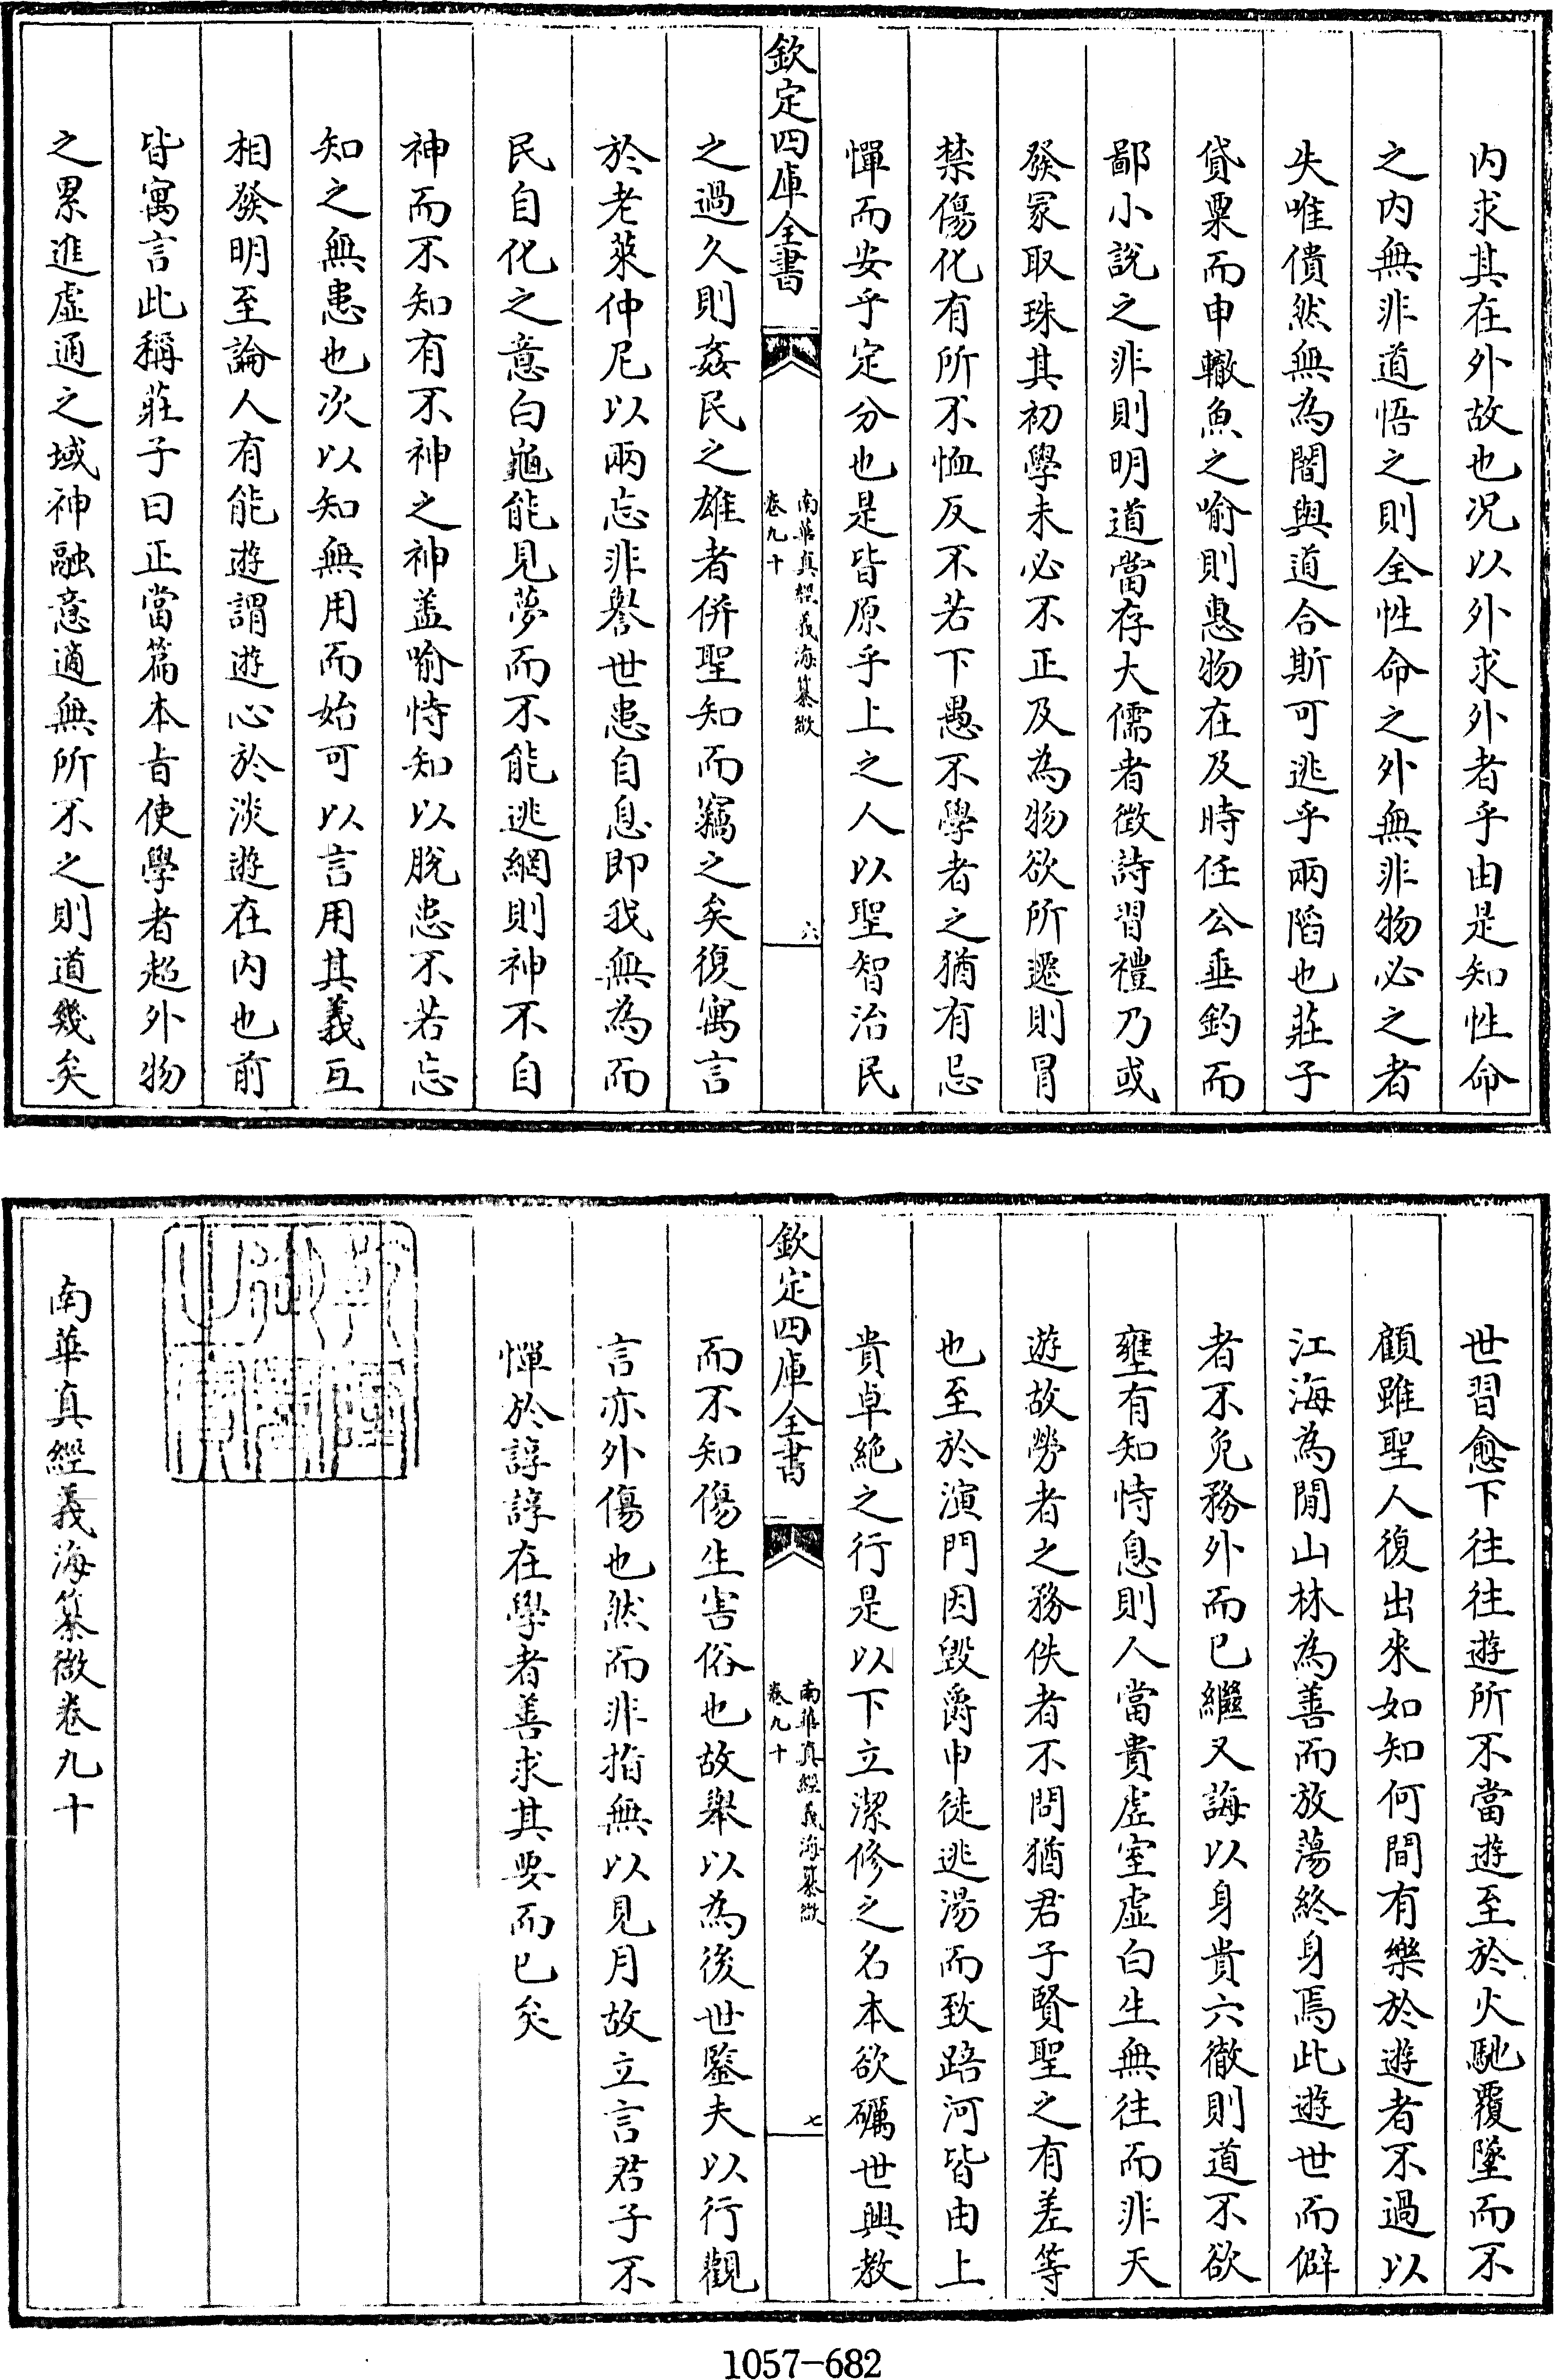 内求其在外故也况以外求外者乎由是知性命
之内無非道悟之則全性命之外無非物必之者
失唯僓然無為闇與道合斯可逃乎兩陷也莊子
貸粟而申轍魚之喻則惠物在及時任公垂釣而
鄙小說之非則明道當存大儒者徵詩習禮乃或
發冢取珠其初學未必不正及為物欲所遷則冒
禁傷化有所不恤反不若下愚不學者之猶有忌
憚而安乎定分也是皆原乎上之人以聖智治民
欽定四庫全書
南華真經義海纂微
卷九十
六
之過久則姦民之雄者併聖知而竊之矣復寓言
於老萊仲尼以兩忘非譽世患自息即我無為而
民自化之意白龜能見夢而不能逃網則神不自
神而不知有不神之神盖喻恃知以脫患不若忘
知之無患也次以知無用而始可以言用其義互
相發明至論人有能遊謂遊心於淡遊在内也前
皆寓言此稱莊子曰正當篇本旨使學者超外物
之累進虛通之域神融意適無所不之則道幾矣
世習愈下往往遊所不當遊至於火馳覆墜而不
顧雖聖人復出來如知何間有樂於遊者不過以
江海為閒山林為善而放蕩終身焉此遊世而僻
者不免務外而已繼又誨以身貴六徹則道不欲
壅有知恃息則人當貴虛室虛白生無往而非天
遊故勞者之務佚者不問猶君子賢聖之有差等
也至於演門因毀爵申徒逃湯而致踣河皆由上
貴卓絶之行是以下立潔修之名本欲礪世興教
欽定四庫全書
南華真經義海纂微
卷九十
七
而不知傷生害俗也故舉以為後世鑒夫以行觀
言亦外傷也然而非指無以見月故立言君子不
憚於諄諄在學者善求其要而已矣
乾隆御覽之寶
南華真經義海纂微卷九十
1057-682